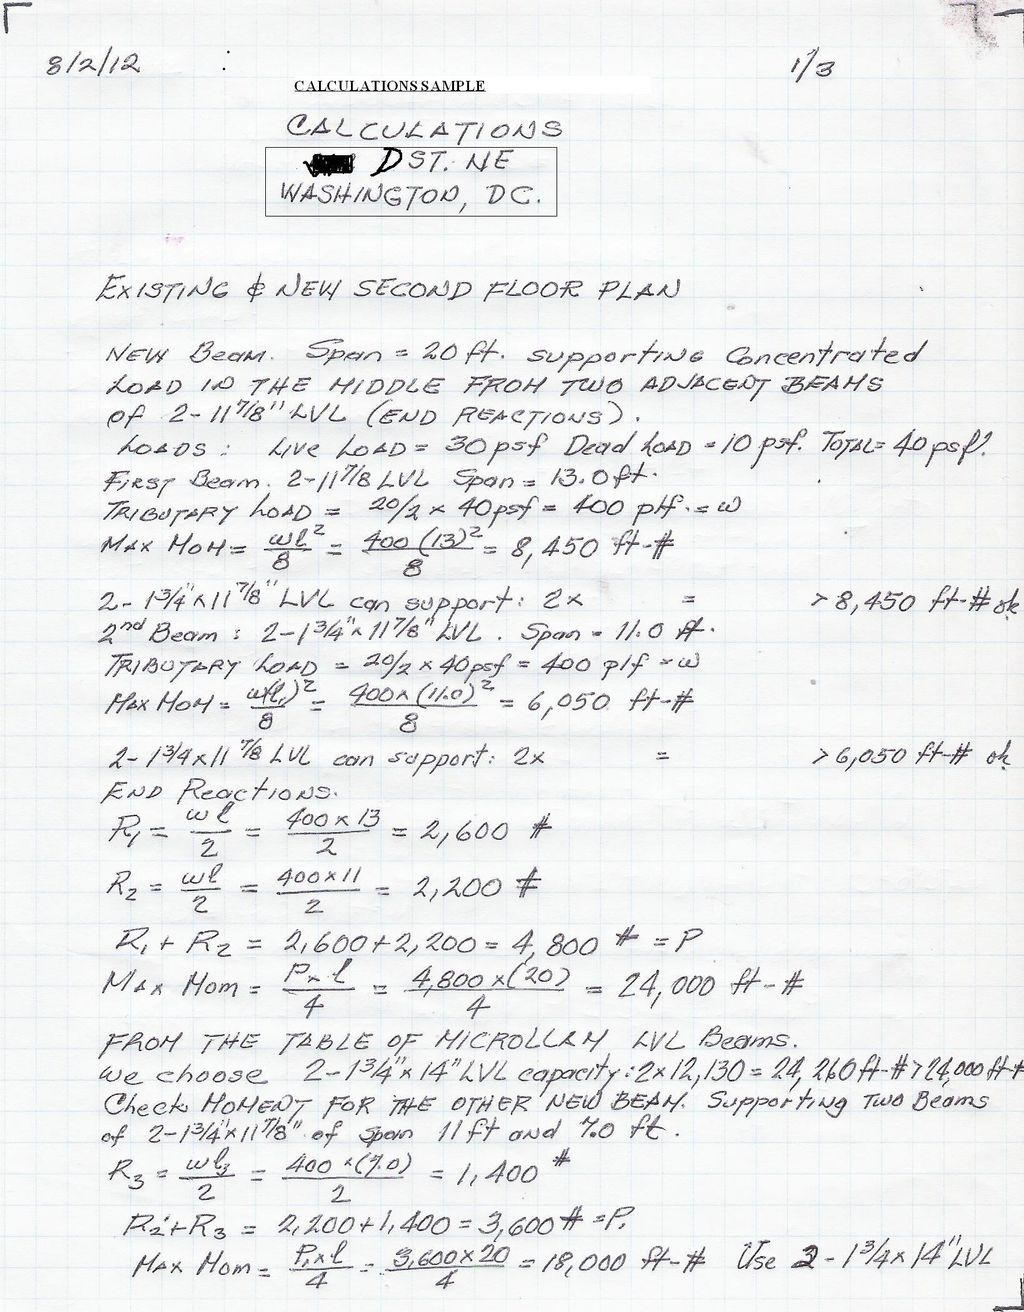 8/2/12 : 1/3
CALCULATIONS SAMPLE
CALCULATIONS
D ST. NE
WASHINGTON, DC.
EXISTING & NEW SECOND FLOOR PLAN
NEW Beam. Span = 20 ft. supporting Concentrated
LOAD IN THE MIDDLE FROM TWO ADJACENT BEAMS
of 2-11 7/8" LVL (END REACTIONS).
LOADS: Live LOAD = 30 psf Dead LOAD = 10 psf. TOTAL = 40 psf.
FIRST Beam. 2-11 7/8 LVL Span = 13.0 ft.
TRIBUTARY LOAD = 20/2 x 40 psf = 400 plf. = w
MAX MOM = wl²/8 = 400 (13)²/8 = 8,450 ft-#
2-1 3/4" x 11 7/8" LVL can support: 2x = > 8,450 ft-# ok
2nd Beam: 2-1 3/4" x 11 7/8" LVL. Span = 11.0 ft.
TRIBUTARY LOAD = 20/2 x 40 psf = 400 plf = w
MAX MOM = w(l₁)²/8 = 400 x (11.0)²/8 = 6,050 ft-#
2-1 3/4 x 11 7/8 LVL can support: 2x = > 6,050 ft-# ok
END Reactions.
R₁ = wl/2 = 400 x 13/2 = 2,600 #
R₂ = wl/2 = 400 x 11/2 = 2,200 #
R₁ + R₂ = 2,600 + 2,200 = 4,800 # = P
MAX Mom = P x l/4 = 4,800 x (20)/4 = 24,000 ft-#
FROM THE TABLE OF MICROLLAM LVL Beams.
we choose 2-1 3/4" x 14" LVL capacity: 2 x 12,130 = 24,260 ft-# > 24,000 ft-#
Check MOMENT FOR THE OTHER NEW BEAM. Supporting Two Beams
of 2-1 3/4" x 11 7/8" of span 11 ft and 7.0 ft.
R₃ = wl₃/2 = 400 x (7.0)/2 = 1,400 #
R₂ + R₃ = 2,200 + 1,400 = 3,600 # = P₁
MAX Mom = P₁ x l/4 = 3,600 x 20/4 = 18,000 ft-# Use 2-1 3/4 x 14" LVL